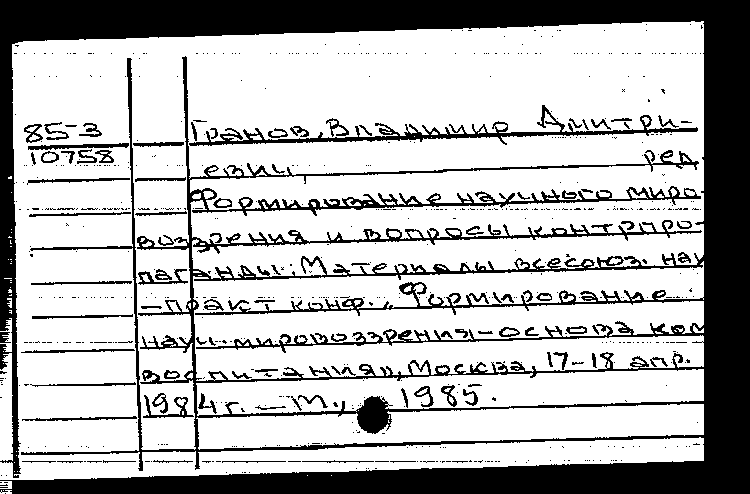 85-3 Гранов, Владимир Дмитри-
10758 евич, ред.
Формирование научного миро-
воззрения и вопросы контрпро-
паганды: Материалы всесоюз. нау
-практ конф. „Формирование
науч. мировоззрения-основа ком
воспитания", Москва, 17-18 апр.
1984 г. - М., 1985.